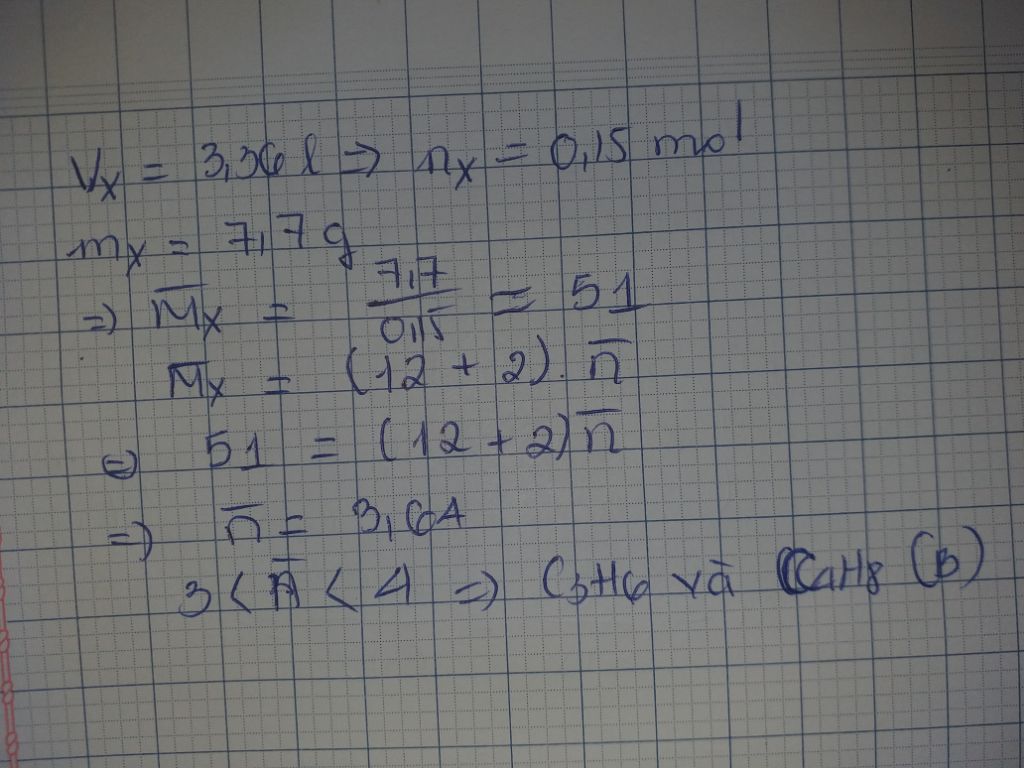 Vx = 3,36 l => nx = 0,15 mol
mx = 7,7 g
=> M̅x = 7,7/0,15 = 51
M̅x = (12 + 2). n̅
<=> 51 = (12 + 2) n̅
=> n̅ = 3,64
3 < n̅ < 4 => C3H6 và C4H8 (B)